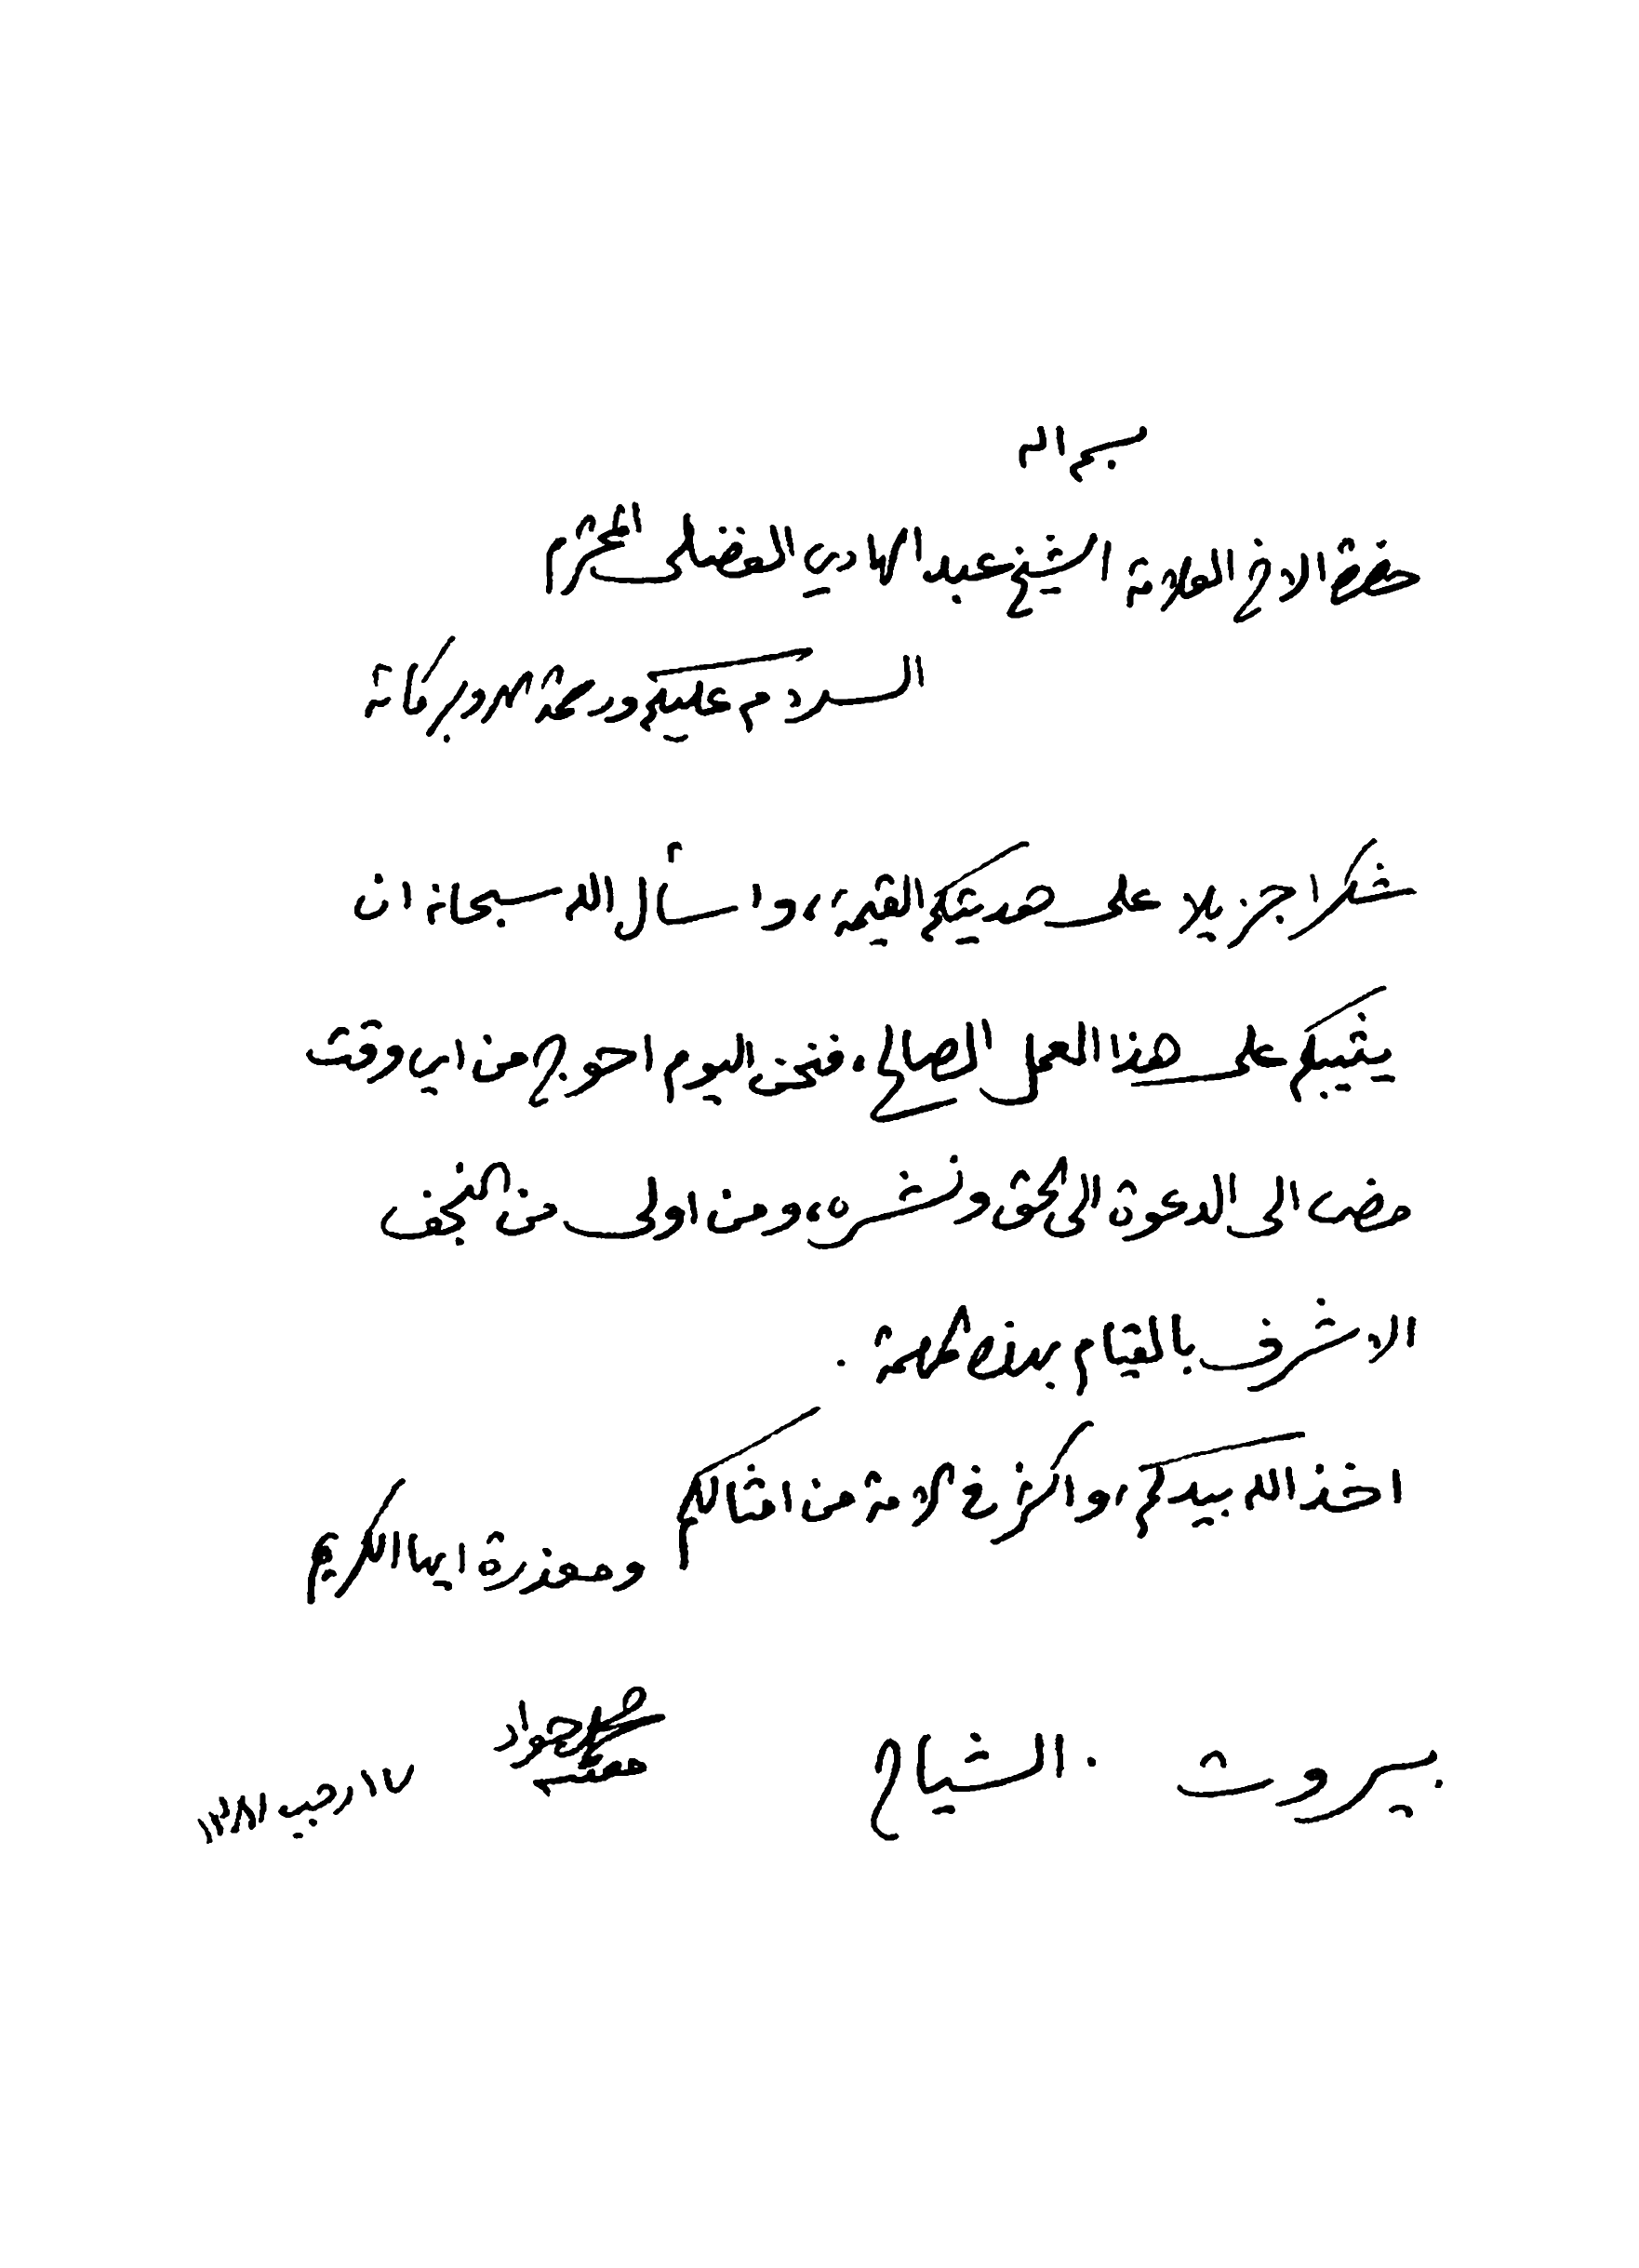 بسم الله
حضرة الاخ العلامة الشيخ عبد الهادي الفضلي المحترم
السلام عليكم ورحمة الله وبركاته
شكرا جزيلا على هديتكم القيمة، واسأل الله سبحانه ان
يثيبكم على هذا العمل الصالح، فنحن اليوم احوج من اي وقت
مضى الى الدعوة الى الحق ونشره، ومن اولى من النجف
الاشرف بالقيام بهذه المهمة .
اخذ الله بيدكم، واكثر في الامة من امثالكم
ومعذرة ايها الكريم
محمد جواد
مغنيه
بيروت . الشياح
١٧ رجب ١٣٨١